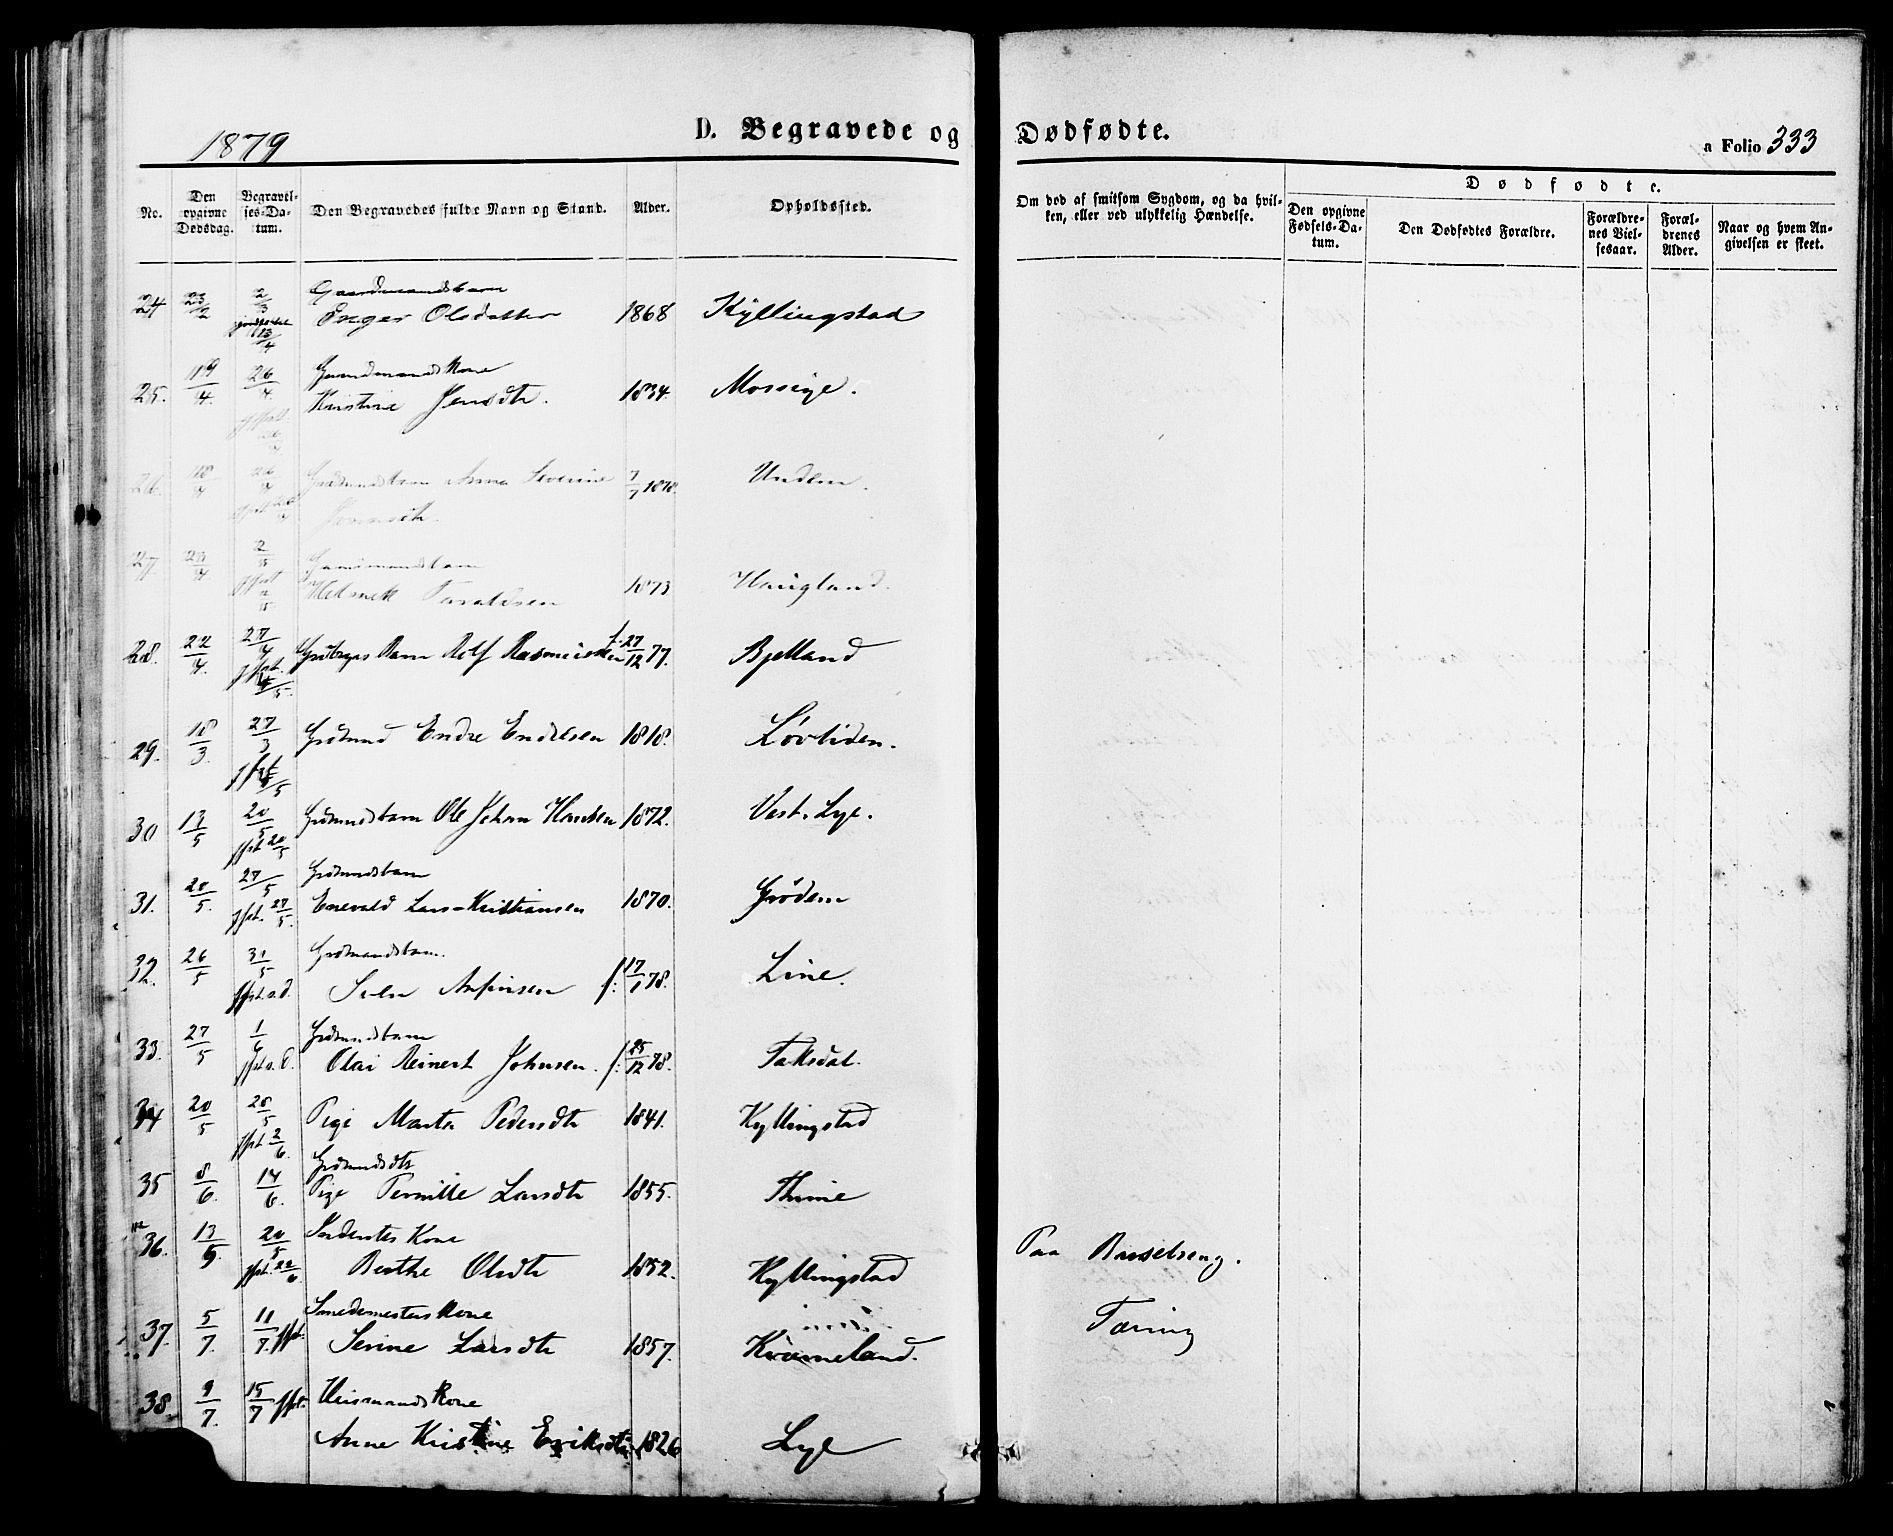 1879
D. Begravede og Dødfødte.
a Folio 333
No.
Den opgivne Dødsdag.
Begravelses-Datum.
Den Begravedes fulde Navn og Stand.
Alder.
Opholdssted.
Om død af smitsom Sygdom, og da hvilken, eller ved ulykkelig Hændelse.
Dødfødte.
Den opgivne Fødsels-Datum.
Den Dødfødtes Forældre.
Forældrenes Vielsesaar.
Forældrenes Alder.
Naar og hvem Angivelsen er skeet.
24 23/2 2/3 13/4 Gaardmandsbarn
Enger Olsdatter 1868 Kyllingstad
25. 19/4. 26/4 Gaardmandskone
Kristine Jensdtr. 1834. Mossige.
26. 18/4 Anna Severine 7/7 1878. Undem.
27. 23/4 2/5 Gaardmandsbarn
Taraldsen 1873 Haugland.
28. 22/4. 27/4 Barn Rolf Rasmussen f. 27/12 77. Bjelland
29. 18/3. 27/3 Grdmand Endre Endresen 1818. Løvliden.
30 13/5 20/5 Grdmandsbarn Ole Johan Hansen 1872. Vest. Lye.
jfst. 20/5
31. 20/5. 27/5 Grdmandsbarn
jfst. 27/5. Enevald Lars Kristiansen 1870. Grødem
32. 26/5 31/5 Grdmandsbarn.
jfst. s.d. Svend Arfinsen f: 17/1 78. Line.
33. 27/5 1/6 Grdmandsbarn
jfst. s.d. Olai Reinert Johnsen. f: 25/12 78. Taksdal.
34 20/5 28/5 Pige Marta Pedersdtr 1841. Kyllingstad
jfst. 2/6
35 8/6. 14/6. Grdmandsdtr
Pige Pernille Larsdtr 1855. Thime
36. 13/5. 20/5 Inderstes Kone
jfst. 22/6 Berthe Olsdtr 1852. Kyllingstad Paa Barselseng.
37. 5/7. 11/7. jfst. Smedemesters Kone
Serine Larsdtr 1857. Kvæmeland. Tæring
38. 9/7. 15/7 jfst. Huusmandskone
Anne Kristine Eriksdtr 1826 Lye